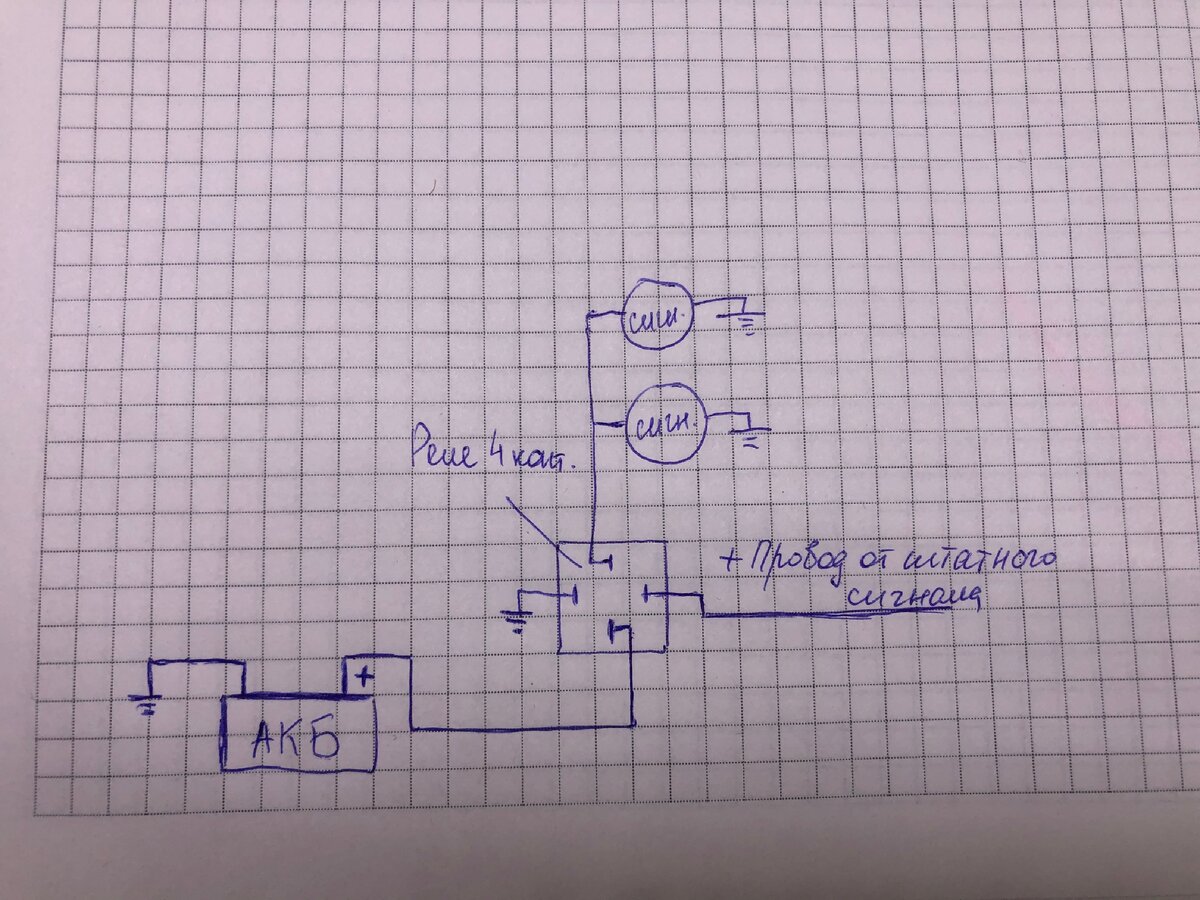 сигн.
сигн.
Реле 4 конт.
+ Провод от штатного
сигнала
+
АКБ